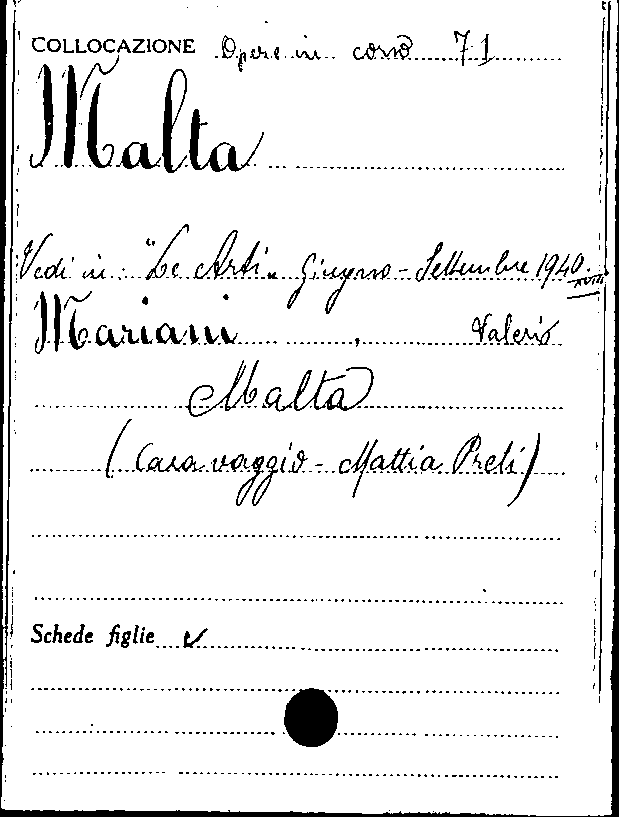 COLLOCAZIONE Opere in corso 71
Malta
Vedi in: "Le Arti" Giugno - Settembre 1940. XVIII
Mariani, Valerio
Malta
(Caravaggio - Mattia Preti)
Schede figlie v